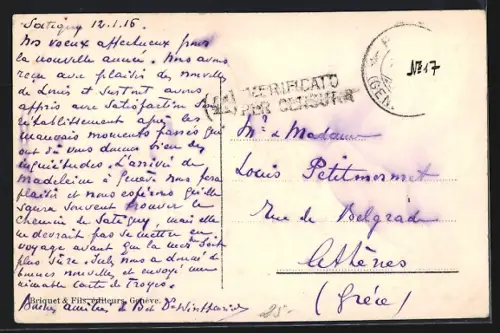 Satigny 12.1.16.
Nos voeux affectueux pour
la nouvelle année. Nous avons
reçu avec plaisir des nouvelles
de Louis et surtout avons
appris avec satisfaction son
rétablissement après les
mauvais moments passés qui
ont dû vous donner bien des
inquiétudes. L'arrivée de
Madeleine à Genève nous fera
plaisir et nous espérons qu'elle
saura souvent trouver le
chemin de Satigny, mais elle
ne devrait pas se mettre en
voyage avant que la mer soit
plus sûre. July nous a donné de
bonnes nouvelles et envoyé une
aimable carte de Troyes.
Bonnes amitiés
Briquet & Fils, éditeurs, Genève.
VERIFICATO
PER CENSURA
(GEN
No 17
Mr & Madame
Louis Petitmermet
Rue de Belgrade
Athènes
(Grèce)
25.-